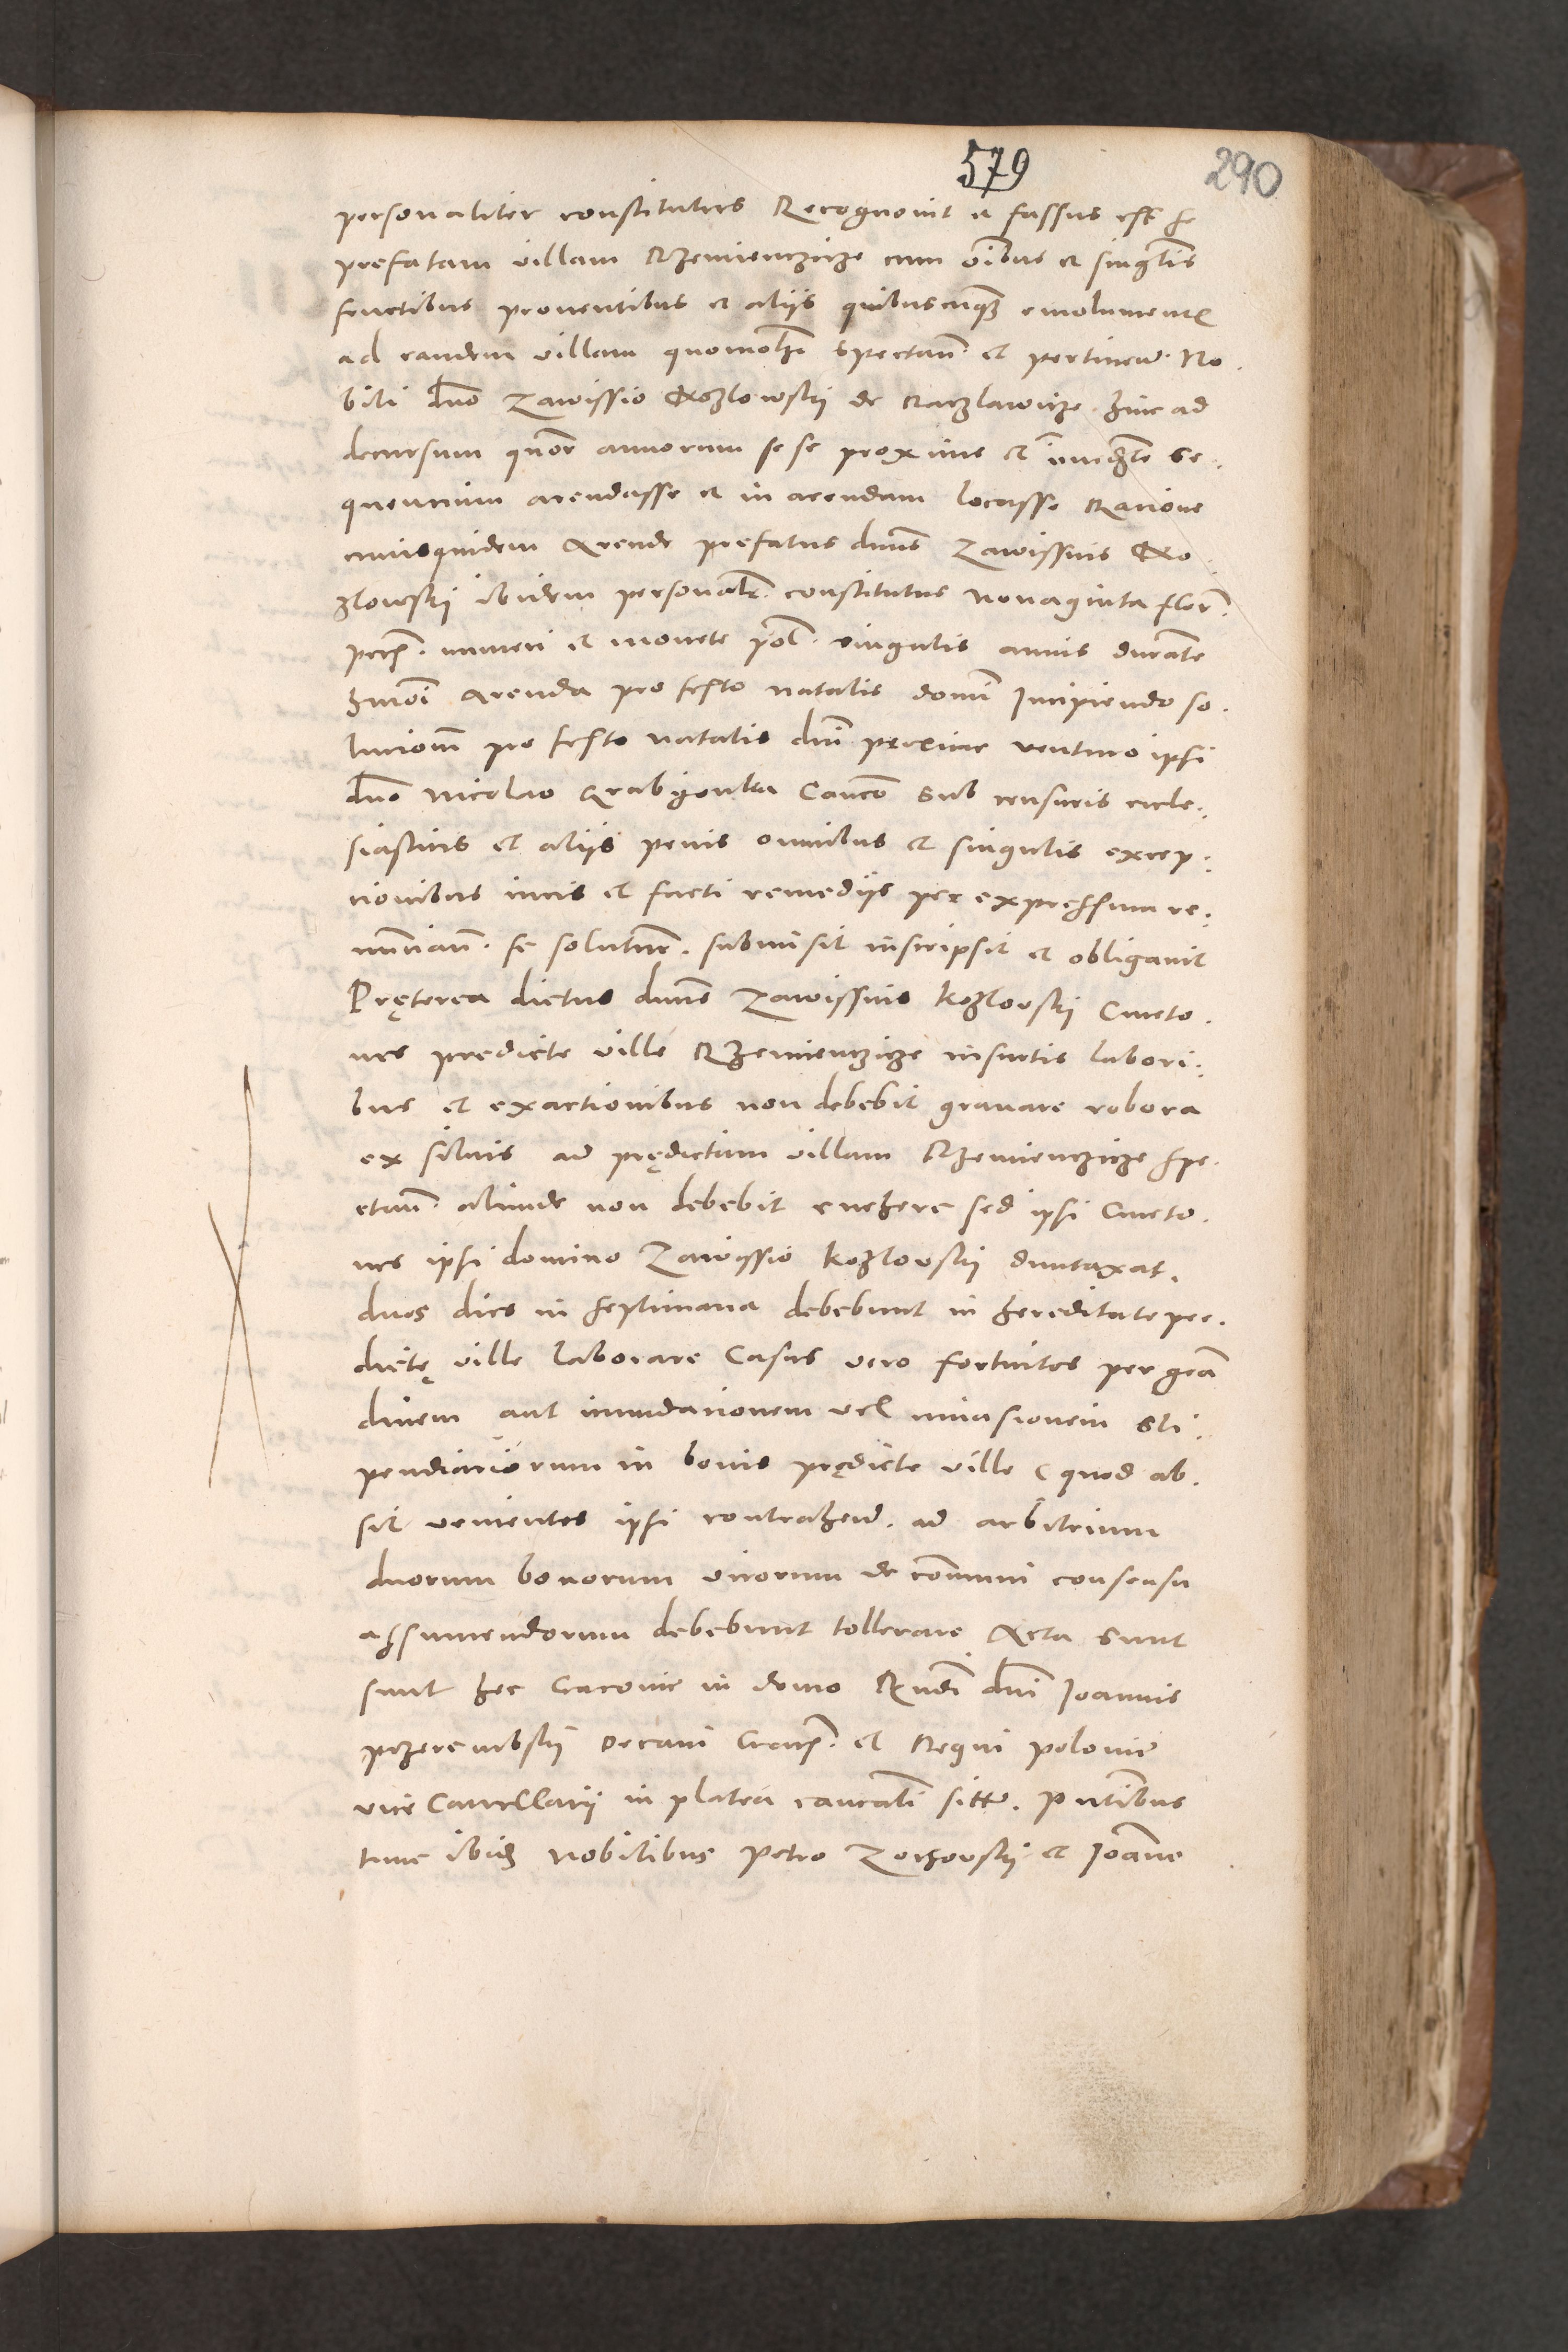 579
290
personaliter constitutus Recognovit et fassus est se
prefatam villam Rzemienczicze cum oibus et singulis
fructibus proventibus et aliis quibuscunque emolument
ad eandem villam quomolibet spectan. et pertinen. No.
bili dno Zawissio Kozlowskij de Raczlawicze hinc ad
decursum quor annorum se se proxime et immediate se.
quentium arendasse et in arendam locasse Ratione
cuiusquidem Arende prefatus dnus Zawissius Ko.
zlowskij ibidem personalr. constitutus nonaginta flor.
pecun. numeri et monete pol. singulis annis durante
hmoi Arenda pro festo natalis domi Incipiendo so.
lucionem pro festo natalis dni proxime venturo ipsi
dno Nicolao Grabyonka Canco sub censuris eccle.
siasticis et aliis penis omnibus et singulis excep.
tionibus iuris et facti remediis per expressum re.
nuncian. se soluturum. submisit inscripsit et obligavit
Pręterea dictus dnus Zawissius Kozlovskij Cmeto.
nes predicte ville Rzemienczicze insuetis labori.
bus et exactionibus non debebit gravare robora
ex silvis ad prędictam villam Rzemienczicze spe.
ctan. aliunde non debebit evehere sed ipsi Cmeto.
nes ipsi domino Zawissio Kozlovskij duntaxat.
duos dies in septimana debebunt in hereditate pre.
dictę ville laborare Casus vero fortuitos per gran
dinem aut inundationem vel invasionem sti.
pendiariorum in bonis prędicte ville (quod ab.
sit venientes ipsi contrahen. ad arbitrium
duorum bonorum virorum de communi consensu
assumendorum debebunt tollerare Acta sunt
sunt hec Cracovie in domo Rndi dni Joannis
przerembskij Decani Cracn. et Regni polonie
vice Cancellarii in platea canonicali sitta. Pntibus
tunc ibidem Nobilibus Petro Zorzovskij et Joanne